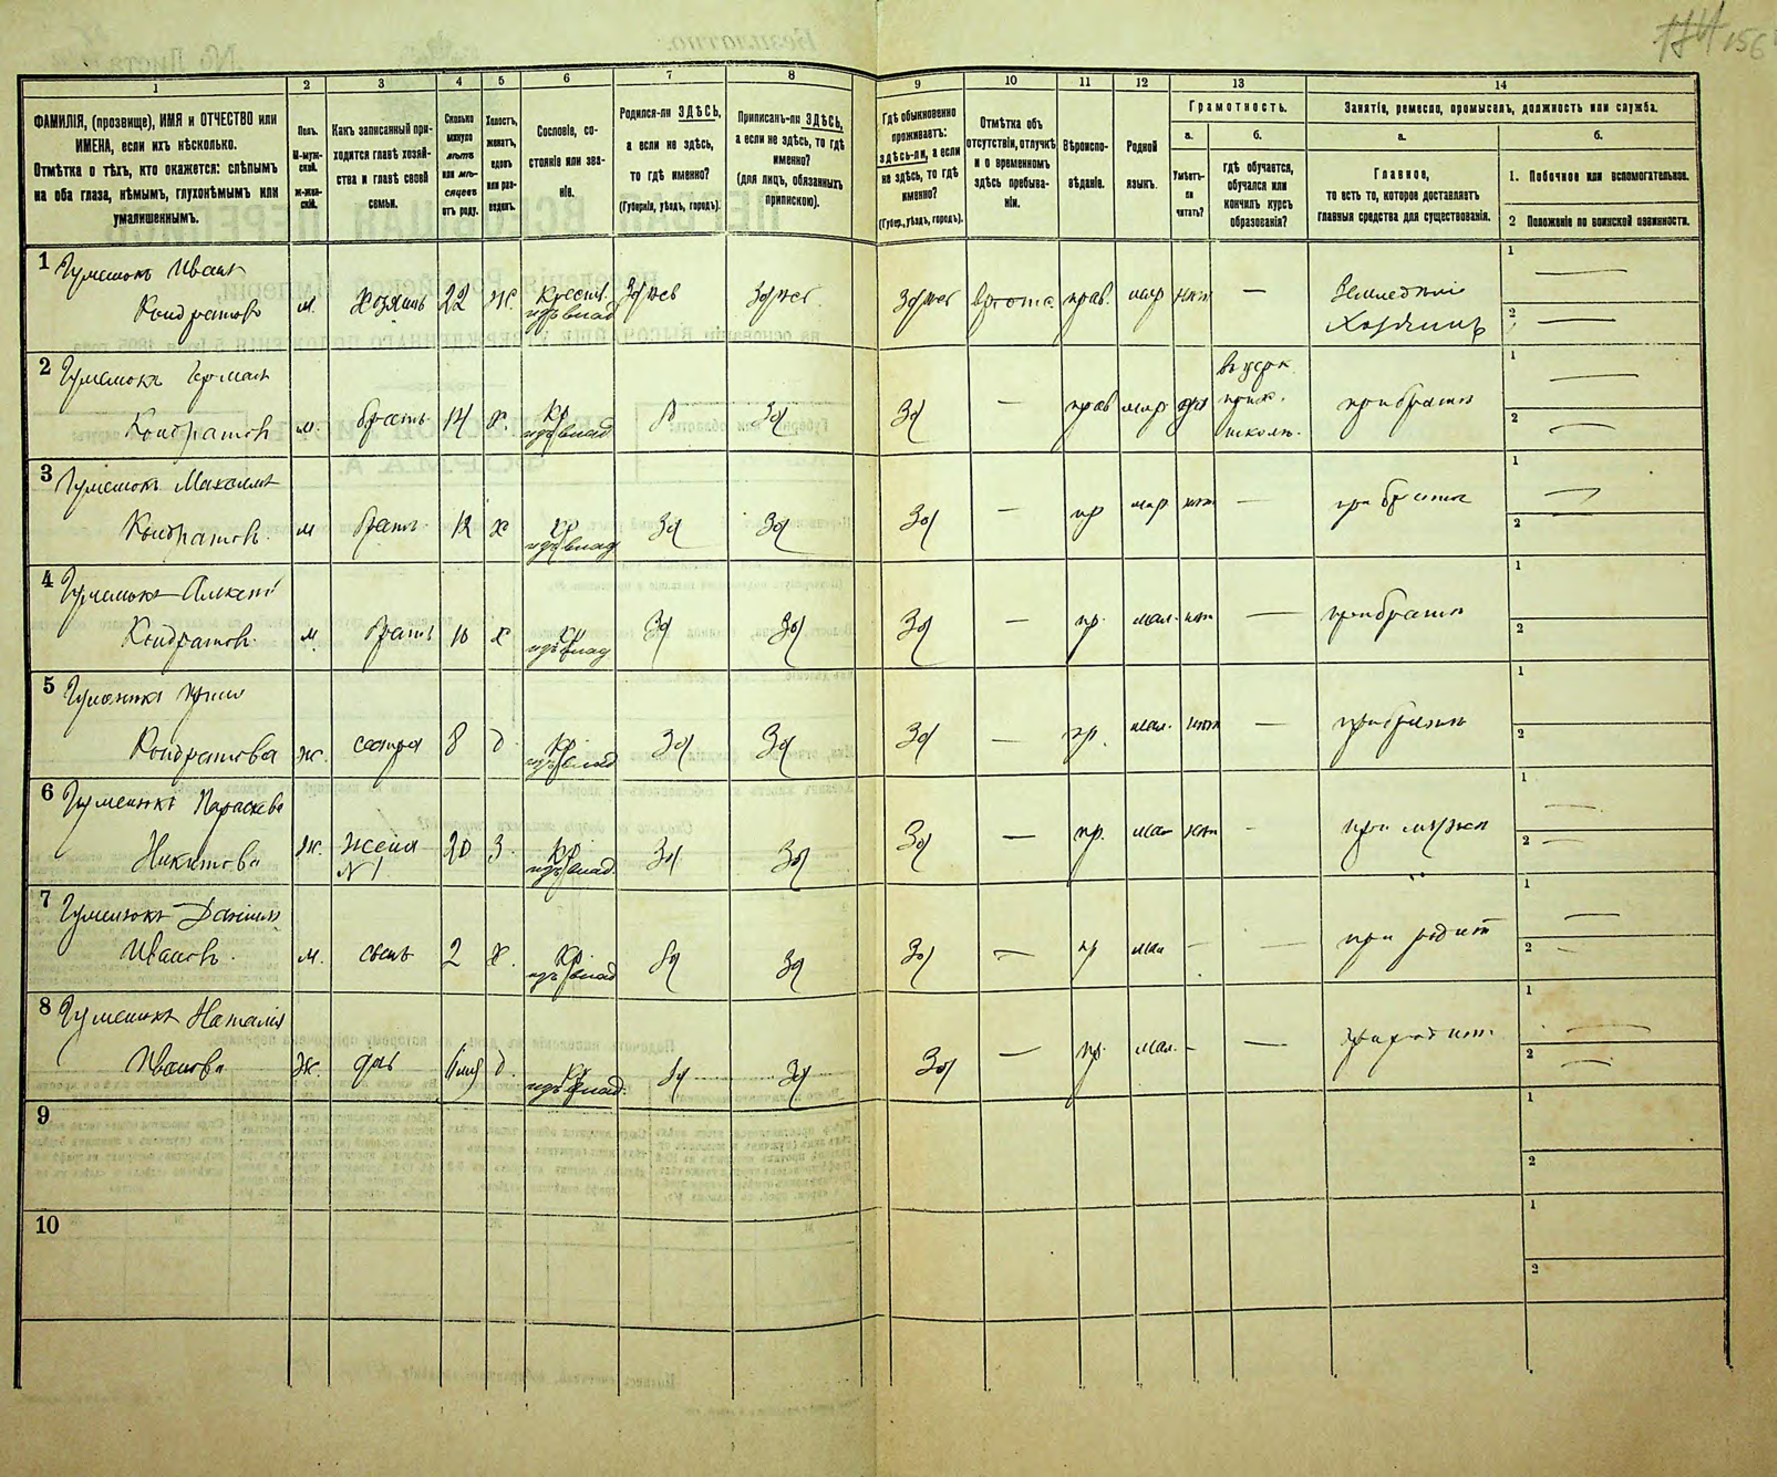 156
1 2 3 4 5 6 7 8 9 10 11 12 13 14
ФАМИЛІЯ, (прозвище), ИМЯ и ОТЧЕСТВО или
ИМЕНА, если ихъ нѣсколько.
Отмѣтка о тѣхъ, кто окажется: слѣпымъ
на оба глаза, нѣмымъ, глухонѣмымъ или
умалишеннымъ.
Полъ.
М-муж-
ской.
ж-жен-
скій.
Какъ записанный при-
ходится главѣ хозяй-
ства и главѣ своей
семьи.
Сколько
минуло
лѣтъ
или мѣ-
сяцевъ
отъ роду.
Холостъ,
женатъ,
вдовъ
или раз-
веденъ.
Сословіе, со-
стояніе или зва-
ніе.
Родился-ли ЗДѢСЬ,
а если не здѣсь,
то гдѣ именно?
(Губернія, уѣздъ, городъ).
Приписанъ-ли ЗДѢСЬ,
а если не здѣсь, то гдѣ
именно?
(для лицъ, обязанныхъ
припискою).
Гдѣ обыкновенно
проживаетъ:
здѣсь-ли, а если
не здѣсь, то гдѣ
именно?
(Губер., уѣздъ, городъ).
Отмѣтка объ
отсутствіи, отлучкѣ
и о временномъ
здѣсь пребыва-
ніи.
Вѣроиспо-
вѣданіе.
Родной
языкъ.
Грамотность.
а. б.
Умѣетъ-
ли
читать?
гдѣ обучается,
обучался или
кончилъ курсъ
образованія?
Занятія, ремесло, промыселъ, должность или служба.
а. б.
Главное,
то есть то, которое доставляетъ
главныя средства для существованія.
1. Побочное или вспомогательное.
2 Положеніе по воинской повинности.
1 Гуменюкъ Иванъ
Кондратовъ м. Хозяинъ 22 ж. Крест. здѣсь здѣсь здѣсь прав. мар нѣт — Земледѣліе
Хозяинъ
1 —
2 —
2 Гуменюкъ Герман
Кондратовъ м. братъ 14 х. Кр Зд Зд — прав мар да
в церк.
прих.
школѣ.
при братѣ
1 —
2 —
3 Гуменюкъ Максимъ
Кондратовъ. м братъ 12 х кр Зд Зд Зд — пр мар нѣт — при братѣ
1 —
2
4 Гуменюкъ Алексѣй
Кондратовъ. м. братъ 10 х кр Зд Зд Зд — пр. мал. нѣт — при братѣ
1
2
5 Гуменюкъ
Кондратова ж. сестра 8 д. Кр Зд Зд Зд — пр. мал. нѣт — при братѣ
1
2
6 Гуменюкъ Параскева
Никитова Ж. жена
№ 1
20 З. Кр Зд Зд Зд — пр. мал нѣт - при мужѣ
1 —
2 —
7 Гуменюкъ Даніилъ
Ивановъ. м. сынъ 2 х. Кр Зд Зд Зд — пр мал — — при родит
1 —
2 —
8 Гуменюкъ Наталія
Иванова Ж. дочь д. Кр Зд Зд Зд — пр. мал. - — при родит.
1 —
2 —
9
1
2
10
1
2